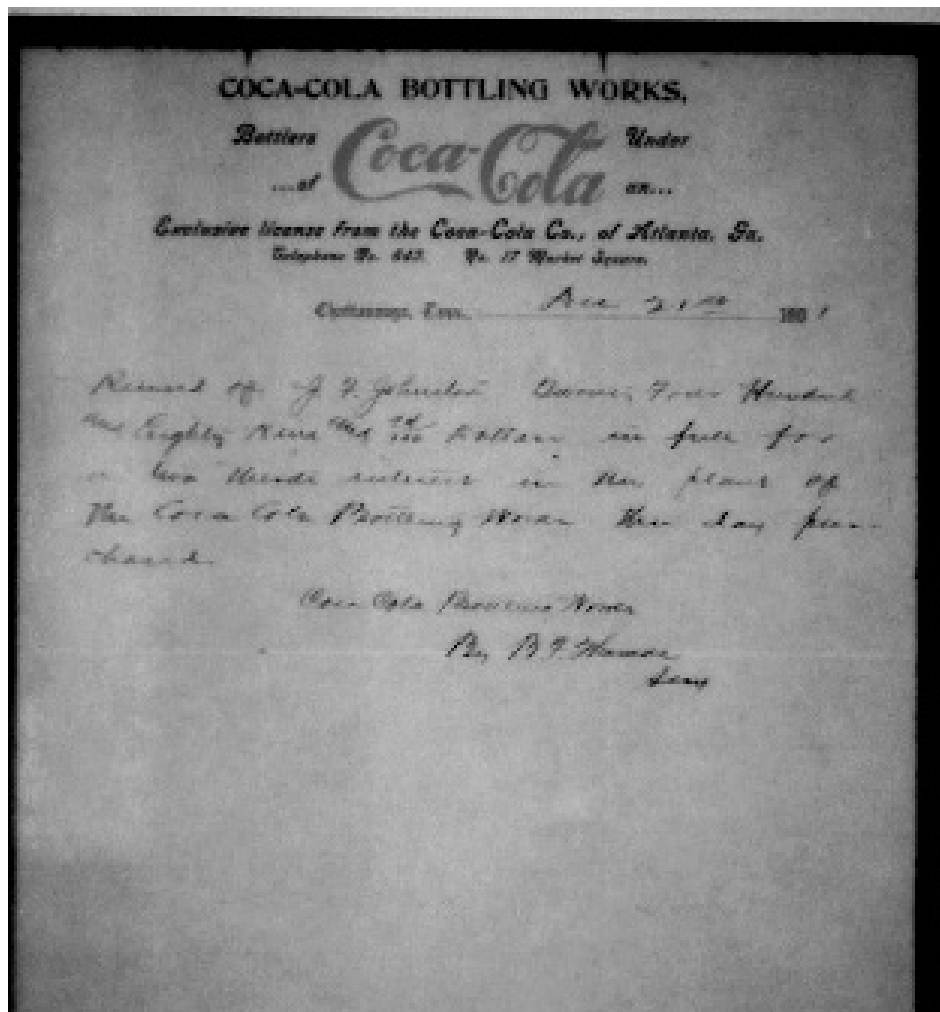 COCA-COLA BOTTLING WORKS,
Bottlers Coca-Cola Under
...of an...
Exclusive license from the Coca-Cola Co., of Atlanta, Ga.
Telephone No. No. 17 Market Square.
Chattanooga, Tenn. 21st 190 1
Received of J F Johnston Hundred
and Eighty Nine and Dollars in full for
a two thirds interest in the plant of
The Coca Cola Bottling Works this day pur-
chased.
Coca Cola Bottling Works
By B F